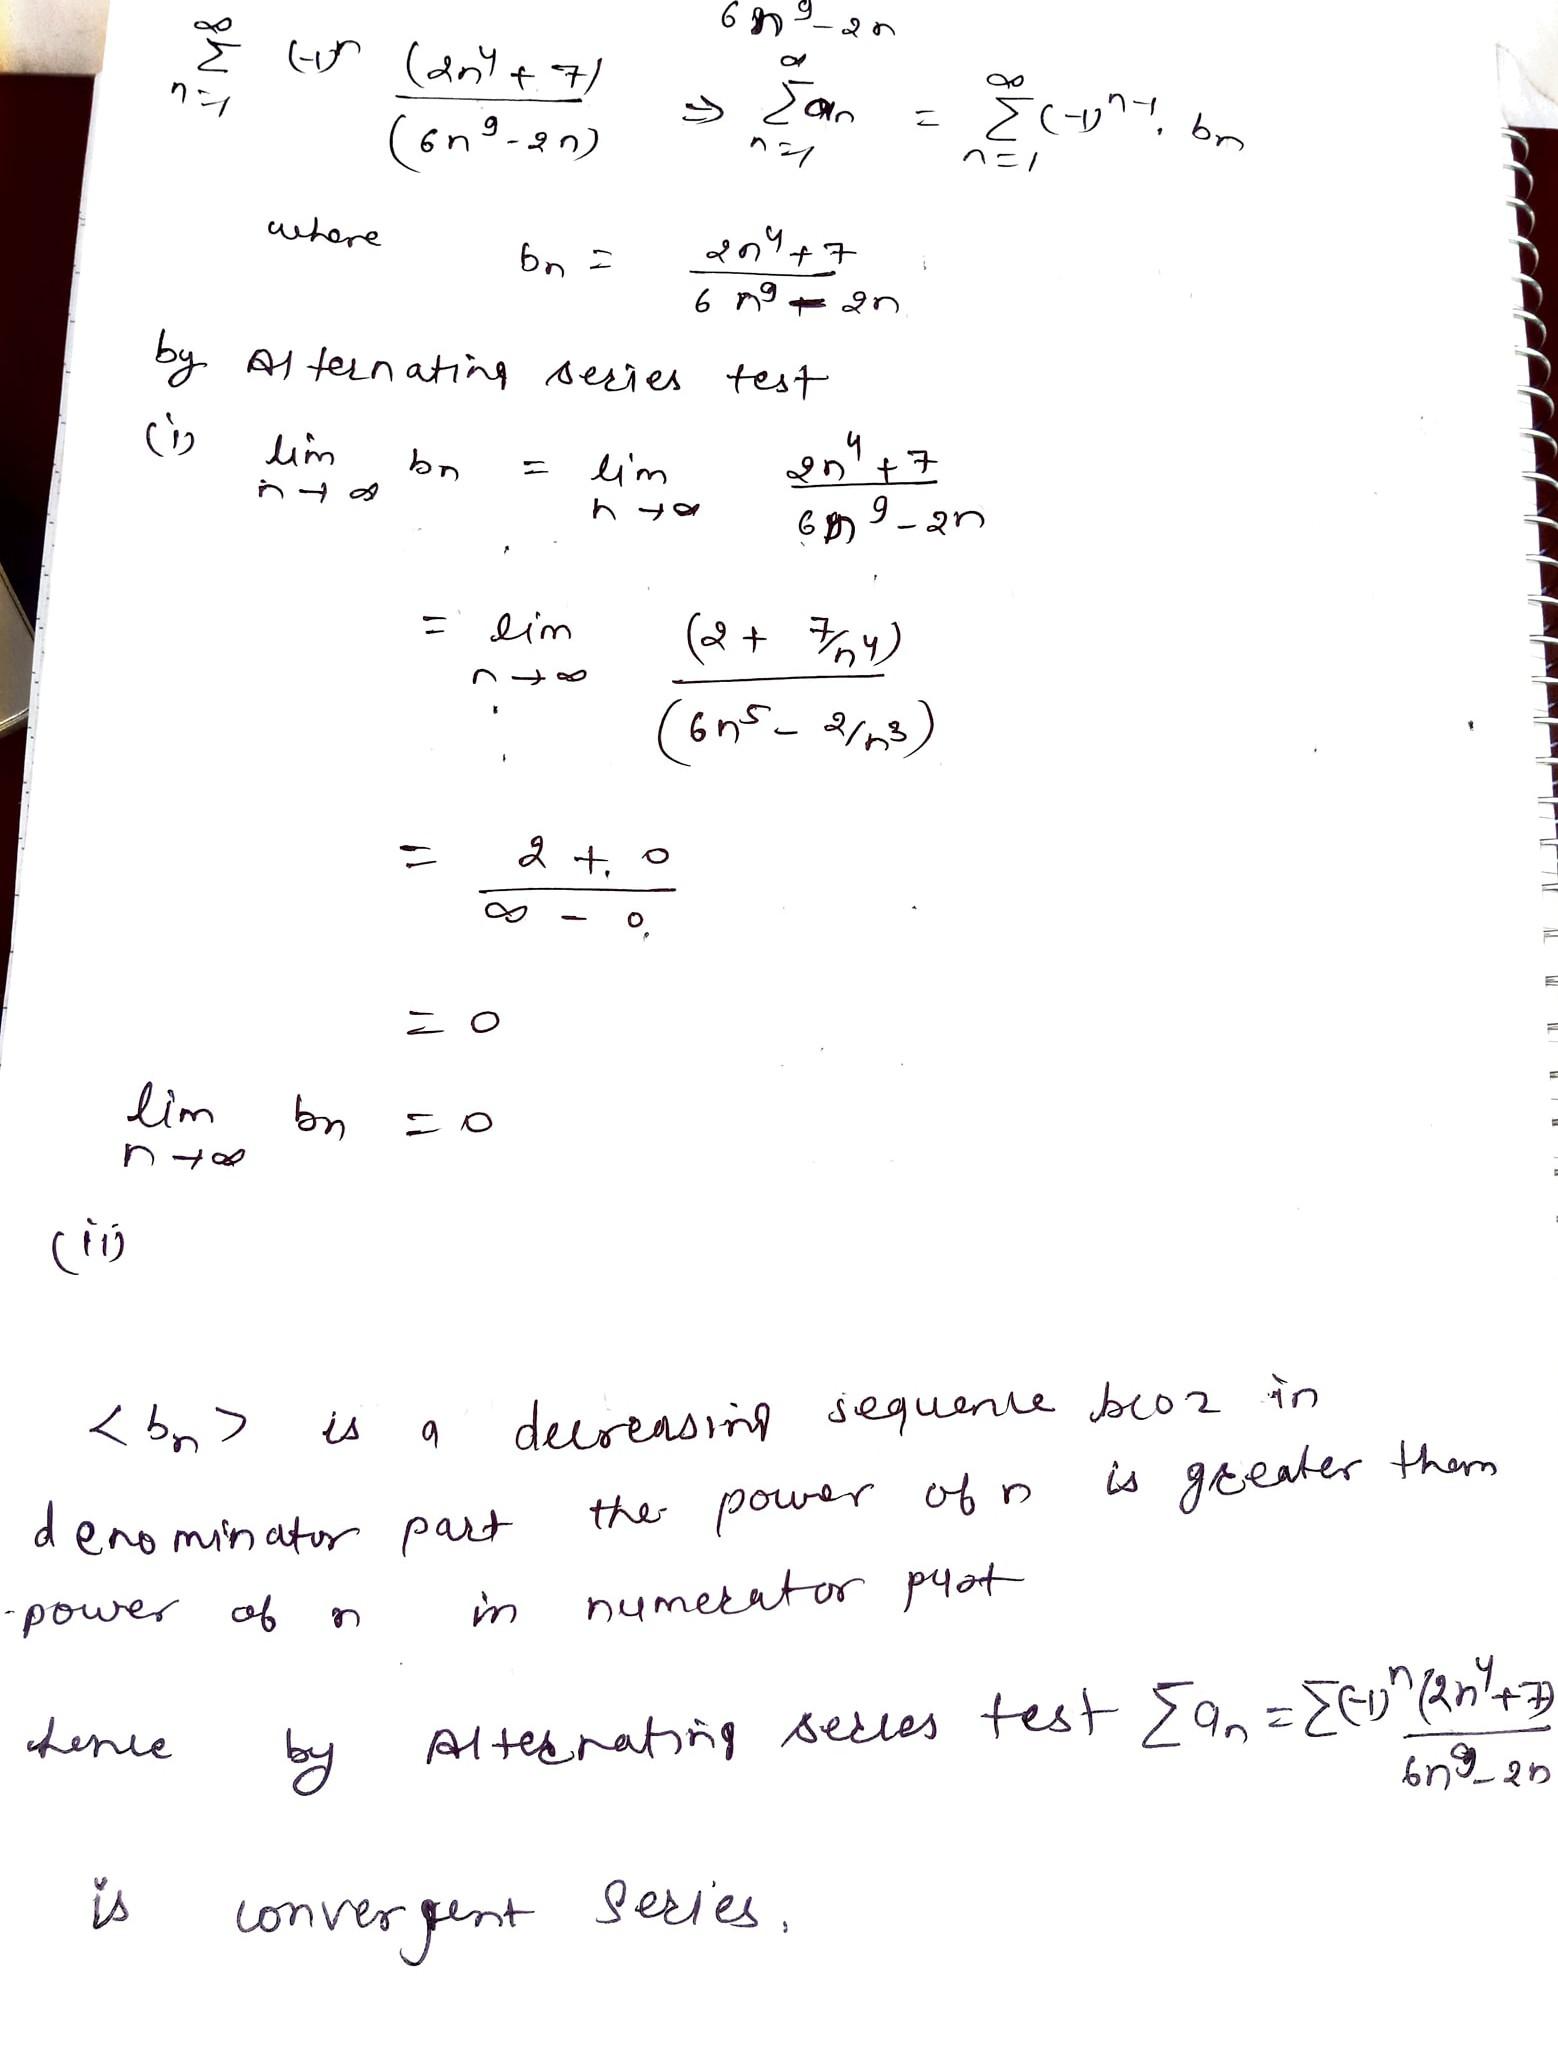 6n^9-2n
∞ ∑ n=1 (-1)^n (2n^4+7)/(6n^9-2n) ⇒ ∞ ∑ n=1 an = ∞ ∑ n=1 (-1)^n-1. bn
where bn = 2n^4+7/6n^9-2n
by Alternating series test
(i) lim n→∞ bn = lim n→∞ 2n^4+7/6n^9-2n
= lim n→∞ (2+7/n^4)/(6n^5-2/n^3)
= 2+0/∞-0
= 0
lim n→∞ bn = 0
(ii)
<bn> is a decreasing sequence bcoz in
denominator part the power of n is greater them
power of n in numerator part
hence by Alternating series test ∑an = ∑(-1)^n (2n^4+7)/6n^9-2n
is convergent series.